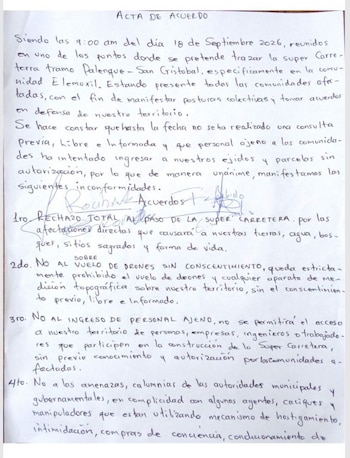 ACTA DE ACUERDO
Siendo las 9:00 am del día 18 de Septiembre 2026, reunidos
en uno de los puntos donde se pretende trazar la super Carre-
terra tramo Palenque - San Cristobal, especificamente en la comu-
nidad Elemoxil. Estando presente todas las comunidades afec-
tadas, con el fin de manifestar posturas colectivas y tomar acuerdos
en defensa de nuestro territorio.
Se hace constar que hasta la fecha no se ha realizado una consulta
previa, Libre e Informada y que personal ajeno a las comunida-
des ha intentado ingresar a nuestros ejidos y parcelas sin
autorización, por lo que de manera unánime, manifestamos las
siguientes inconformidades.
Acuerdos
1ro. RECHAZO TOTAL AL PASO DE LA SUPER CARRETERA. por las
afectaciones directas que causará a nuestras tierras, agua, bos-
ques, sitios sagrados y forma de vida.
2do. NO AL SOBRE VUELO DE DRONES SIN CONSCENTIMIENTO, queda estricta-
mente prohibido el vuelo de drones y cualquier aparato de me-
dición topográfica sobre nuestro territorio, sin el conscentimien-
to previo, libre e informado.
3ro. NO AL INGRESO DE PERSONAL AJENO, no se permitirá el acceso
a nuestro territorio de personas, empresas, ingenieros o trabajado-
res que participen en la construcción de la Super Carretera,
sin previo conocimiento y autorización por las comunidades a-
fectadas.
4to. No a las amenazas, calumnias de las autoridades municipales y
gubernamentales, en complicidad con algunos agentes, caciques y
manipuladores que estan utilizando mecanismo de hostigamiento,
intimidación, compras de conciencia, condicionamiento de